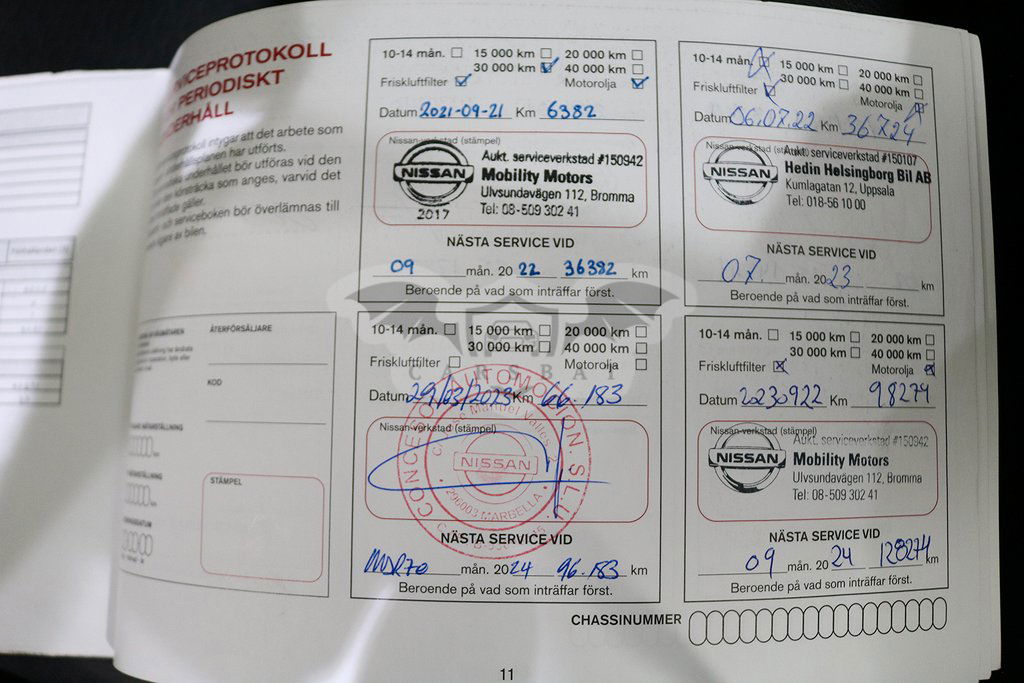 SERVICEPROTOKOLL
PERIODISKT
UNDERHÅLL
intygar att det arbete som
har utförts.
underhållet bör utföras vid den
som anges, varvid det
gäller.
och serviceboken bör överlämnas till
ägare av bilen.
10-14 mån. 15 000 km 20 000 km
30 000 km 40 000 km
Friskluftfilter Motorolja
Datum 2021-09-21 Km 6382
Nissan-verkstad (stämpel)
NISSAN
2017
Aukt. serviceverkstad #150942
Mobility Motors
Ulvsundavägen 112, Bromma
Tel: 08-509 302 41
NÄSTA SERVICE VID
09 mån. 20 22 36382 km
Beroende på vad som inträffar först.
10-14 mån. 15 000 km 20 000 km
30 000 km 40 000 km
Friskluftfilter Motorolja
Datum 06.07.22 Km 36.724
Nissan-verkstad (stämpel)
NISSAN
Aukt. serviceverkstad #150107
Hedin Helsingborg Bil AB
Kumlagatan 12, Uppsala
Tel: 018-56 10 00
NÄSTA SERVICE VID
07. mån. 2023 km
Beroende på vad som inträffar först.
ÅTERFÖRSÄLJARE
KOD
STÄMPEL
10-14 mån. 15 000 km 20 000 km
30 000 km 40 000 km
Friskluftfilter Motorolja
CARSBAT
Datum 29/03/2023 Km 66.183
Nissan-verkstad (stämpel)
AUTOMOTION S.L.U.
NISSAN
296003 MARBELLA
NÄSTA SERVICE VID
mån. 2024 96.183 km
Beroende på vad som inträffar först.
10-14 mån. 15 000 km 20 000 km
30 000 km 40 000 km
Friskluftfilter Motorolja
Datum 20230922 Km 98274
Nissan-verkstad (stämpel)
NISSAN
Aukt. serviceverkstad #150942
Mobility Motors
Ulvsundavägen 112, Bromma
Tel: 08-509 302 41
NÄSTA SERVICE VID
09 mån. 20 24 128274 km
Beroende på vad som inträffar först.
CHASSINUMMER
11